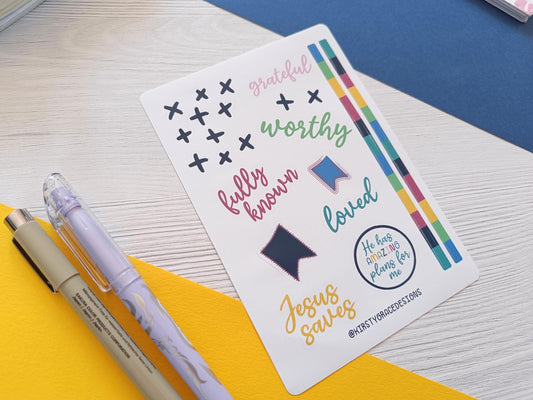 grateful
worthy
fully
known
loved
He has
AMAZING
plans for
me
Jesus
saves
@KIRSTYGRACEDESIGNS